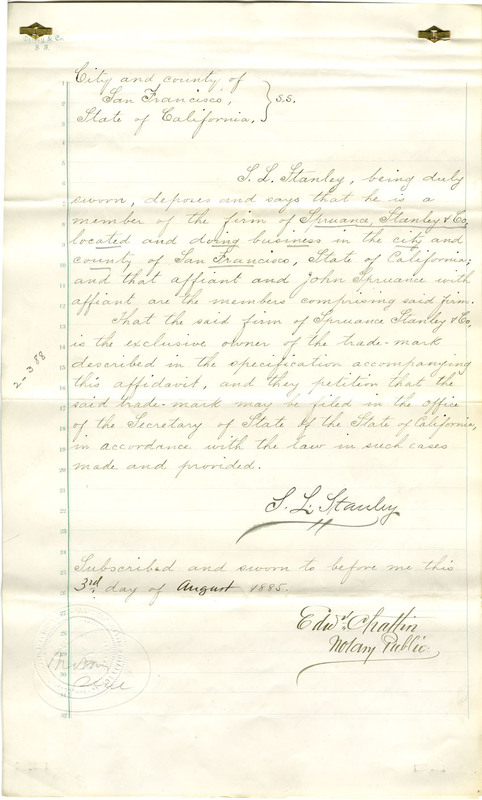 City and county of
San Francisco, } S.S.
State of California.
S. L. Stanley, being duly
sworn, deposes and says that he is a
member of the firm of Spruance, Stanley & Co,
located and doing business in the city and
county of San Francisco, State of California;
and that affiant and John Spruance with
affiant are the members comprising said firm.
That the said firm of Spruance Stanley & Co,
is the exclusive owner of the trade-mark
described in the specification accompanying
this affidavit, and they petition that the
said trade-mark may be filed in the office
of the Secretary of State of the State of California,
in accordance with the law in such cases
made and provided.
S. L. Stanley
Subscribed and sworn to before me this
3rd day of August 1885.
Edwd. Chattin
Notary Public
2-388
1
2
3
4
5
6
7
8
9
10
11
12
13
14
15
16
17
18
19
20
21
22
23
24
25
26
27
28
29
30
31
32